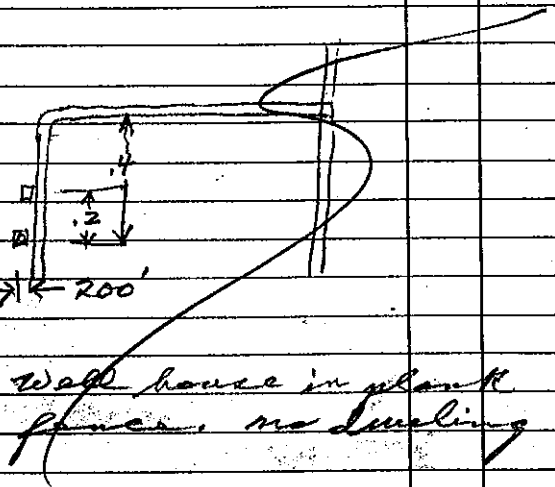 .4
.2
200'
Well house in plank
fence. no dwelling